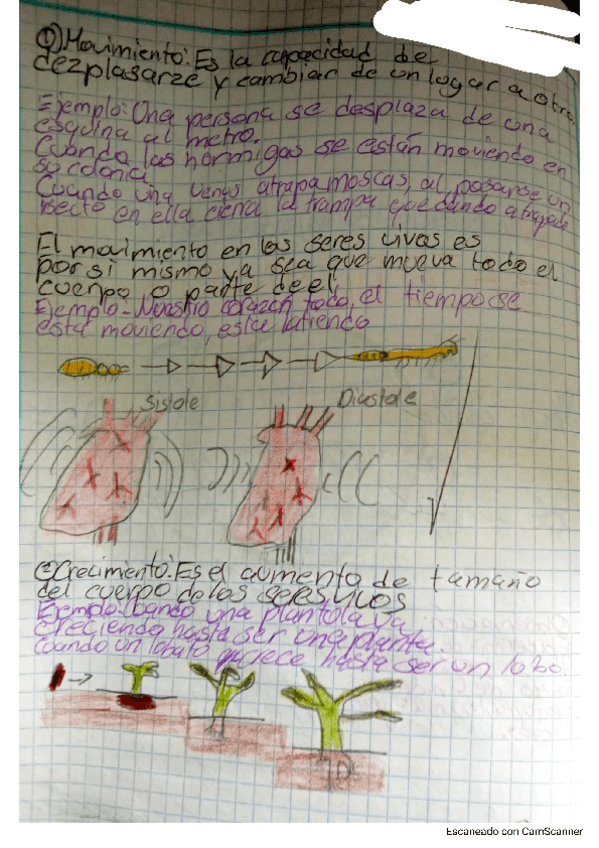 ① Movimiento: Es la capacidad de
dezplasarze y cambiar de un lugar a otro.
Ejemplo: Una persona se desplaza de una
esquina al metro.
Cuando las hormigas se están moviendo en
su colonia
Cuando una venus atrapamoscas, al posarse un
insecto en ella cierra la trampa quedando atrapado
El movimiento en los seres vivos es
por si mismo ya sea que mueva todo el
cuerpo o parte de el
Ejemplo- Nuestro corazón todo, el tiempo se
esta moviendo, esta latiendo
Sistole Diastole
② Crecimiento: Es el aumento de tamaño
del cuerpo de los seres vivos
Ejemplo: Cuando una plantola va
creciendo hasta ser una planta.
Cuando un lobato crece hasta ser un lobo.
Escaneado con CamScanner